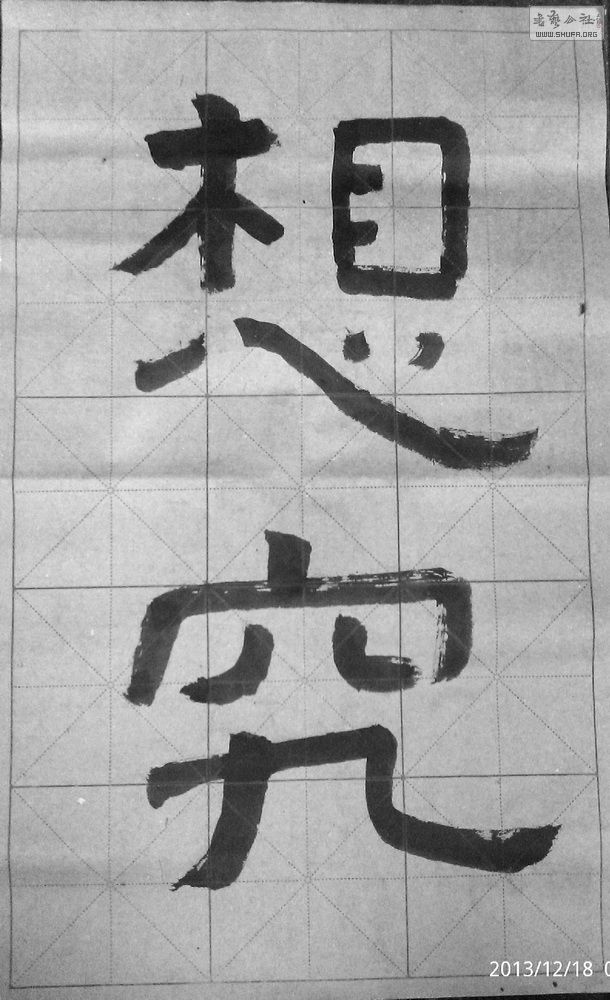 书艺公社
WWW.SHUFA.ORG
想
究
2013/12/18 0